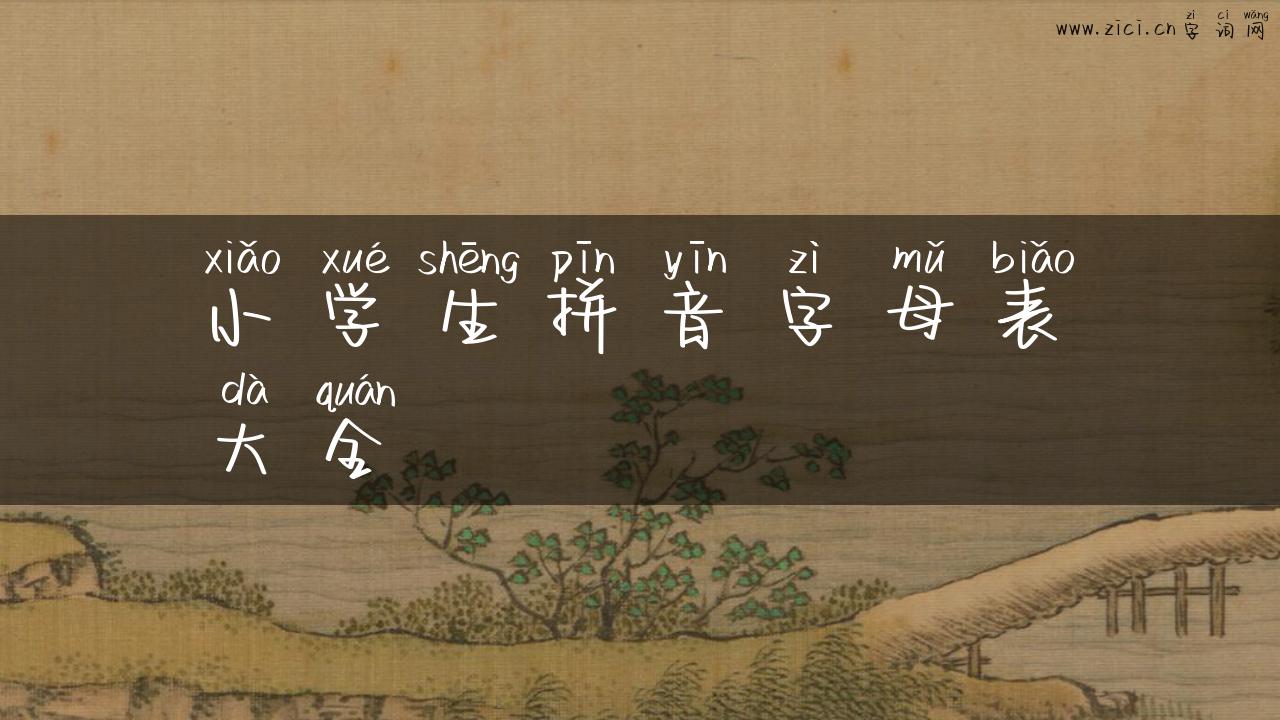 zì cí wǎng
www.zici.cn 字词网
xiǎo xué shēng pīn yīn zì mǔ biǎo
小学生拼音字母表
dà quán
大全